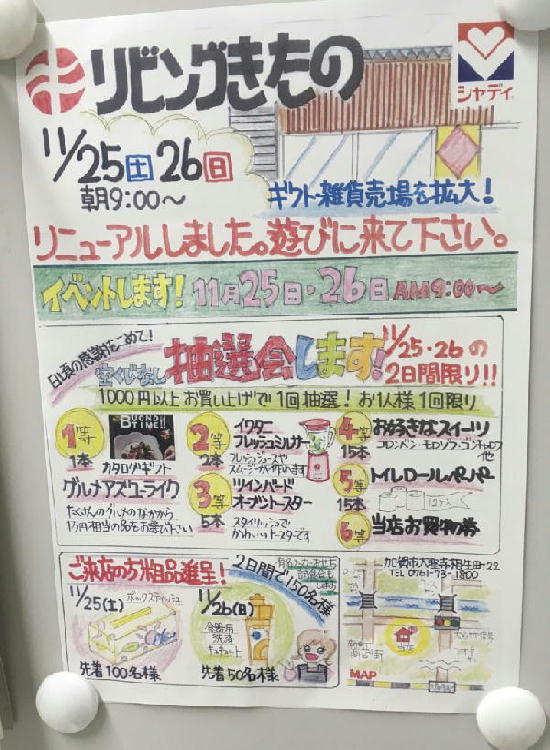 リビングきたの
シャディ
11/25土 26日
朝9:00〜
ギフト雑貨売場を拡大!
リニューアルしました。遊びに来て下さい。
イベントします! 11月25日・26日 AM9:00〜
日頃の感謝をこめて!
空くじなし 抽選会します! 11/25・26の
2日間限り!!
1000円以上お買い上げで1回抽選! お1人様1回限り
1等
1本
カタログギフト
グルメアズユーライク
たくさんのグルメのなかから
1万円相当の品をお選び下さい
2等
2本
イワタニ
フレッシュミルサー
フレッシュジュースや
スムージーが作れます
3等
5本
ツインバード
オーブントースター
スタイリッシュで
かわいいトースターです
4等
15本
お好きなスイーツ
コロンバン・モロゾフ・ゴンチャロフ
他
5等
15本
トイレロールペーパー
6等
当店お買物券
ご来店の方粗品進呈!
2日間で150名様
11/25(土)
ボックスティッシュ
先着100名様
11/26(日)
食器用
洗剤
キュキュット
先着50名様
加賀市大聖寺相生町-22
TEL 0761-73-1800
当店
MAP